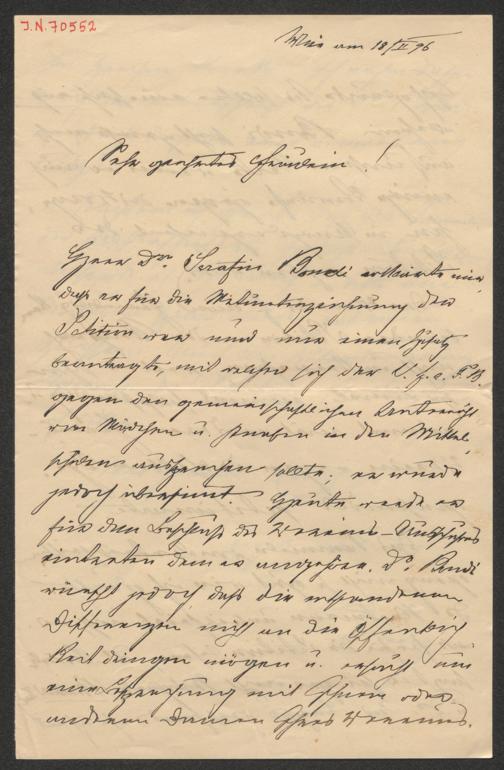 J.N. 70552
Wien am 18/II 96
Sehr geehrtes Fräulein!
Herr Dr. Serafin Bondi erklärte mir,
daß er für die Mitunterzeichnung der
Petition war und nur einen Zusatz
beantragte, mit welchem sich der V. f. e. F.B.
gegen den gemeinschaftlichen Unterricht
von Mädchen u. Knaben in den Mittel-
schulen aussprechen sollte; er wurde
jedoch überstimmt. Heute werde er
für den Beschluß des Vereins-Ausschusses
eintreten dem er angehöre. Dr. Bondi
wünscht jedoch, daß die entstandenen
Differenzen nicht an die Öffentlich
keit dringen mögen u. ersucht um
eine Besprechung mit Ihnen oder
anderen Damen Ihres Vereines.